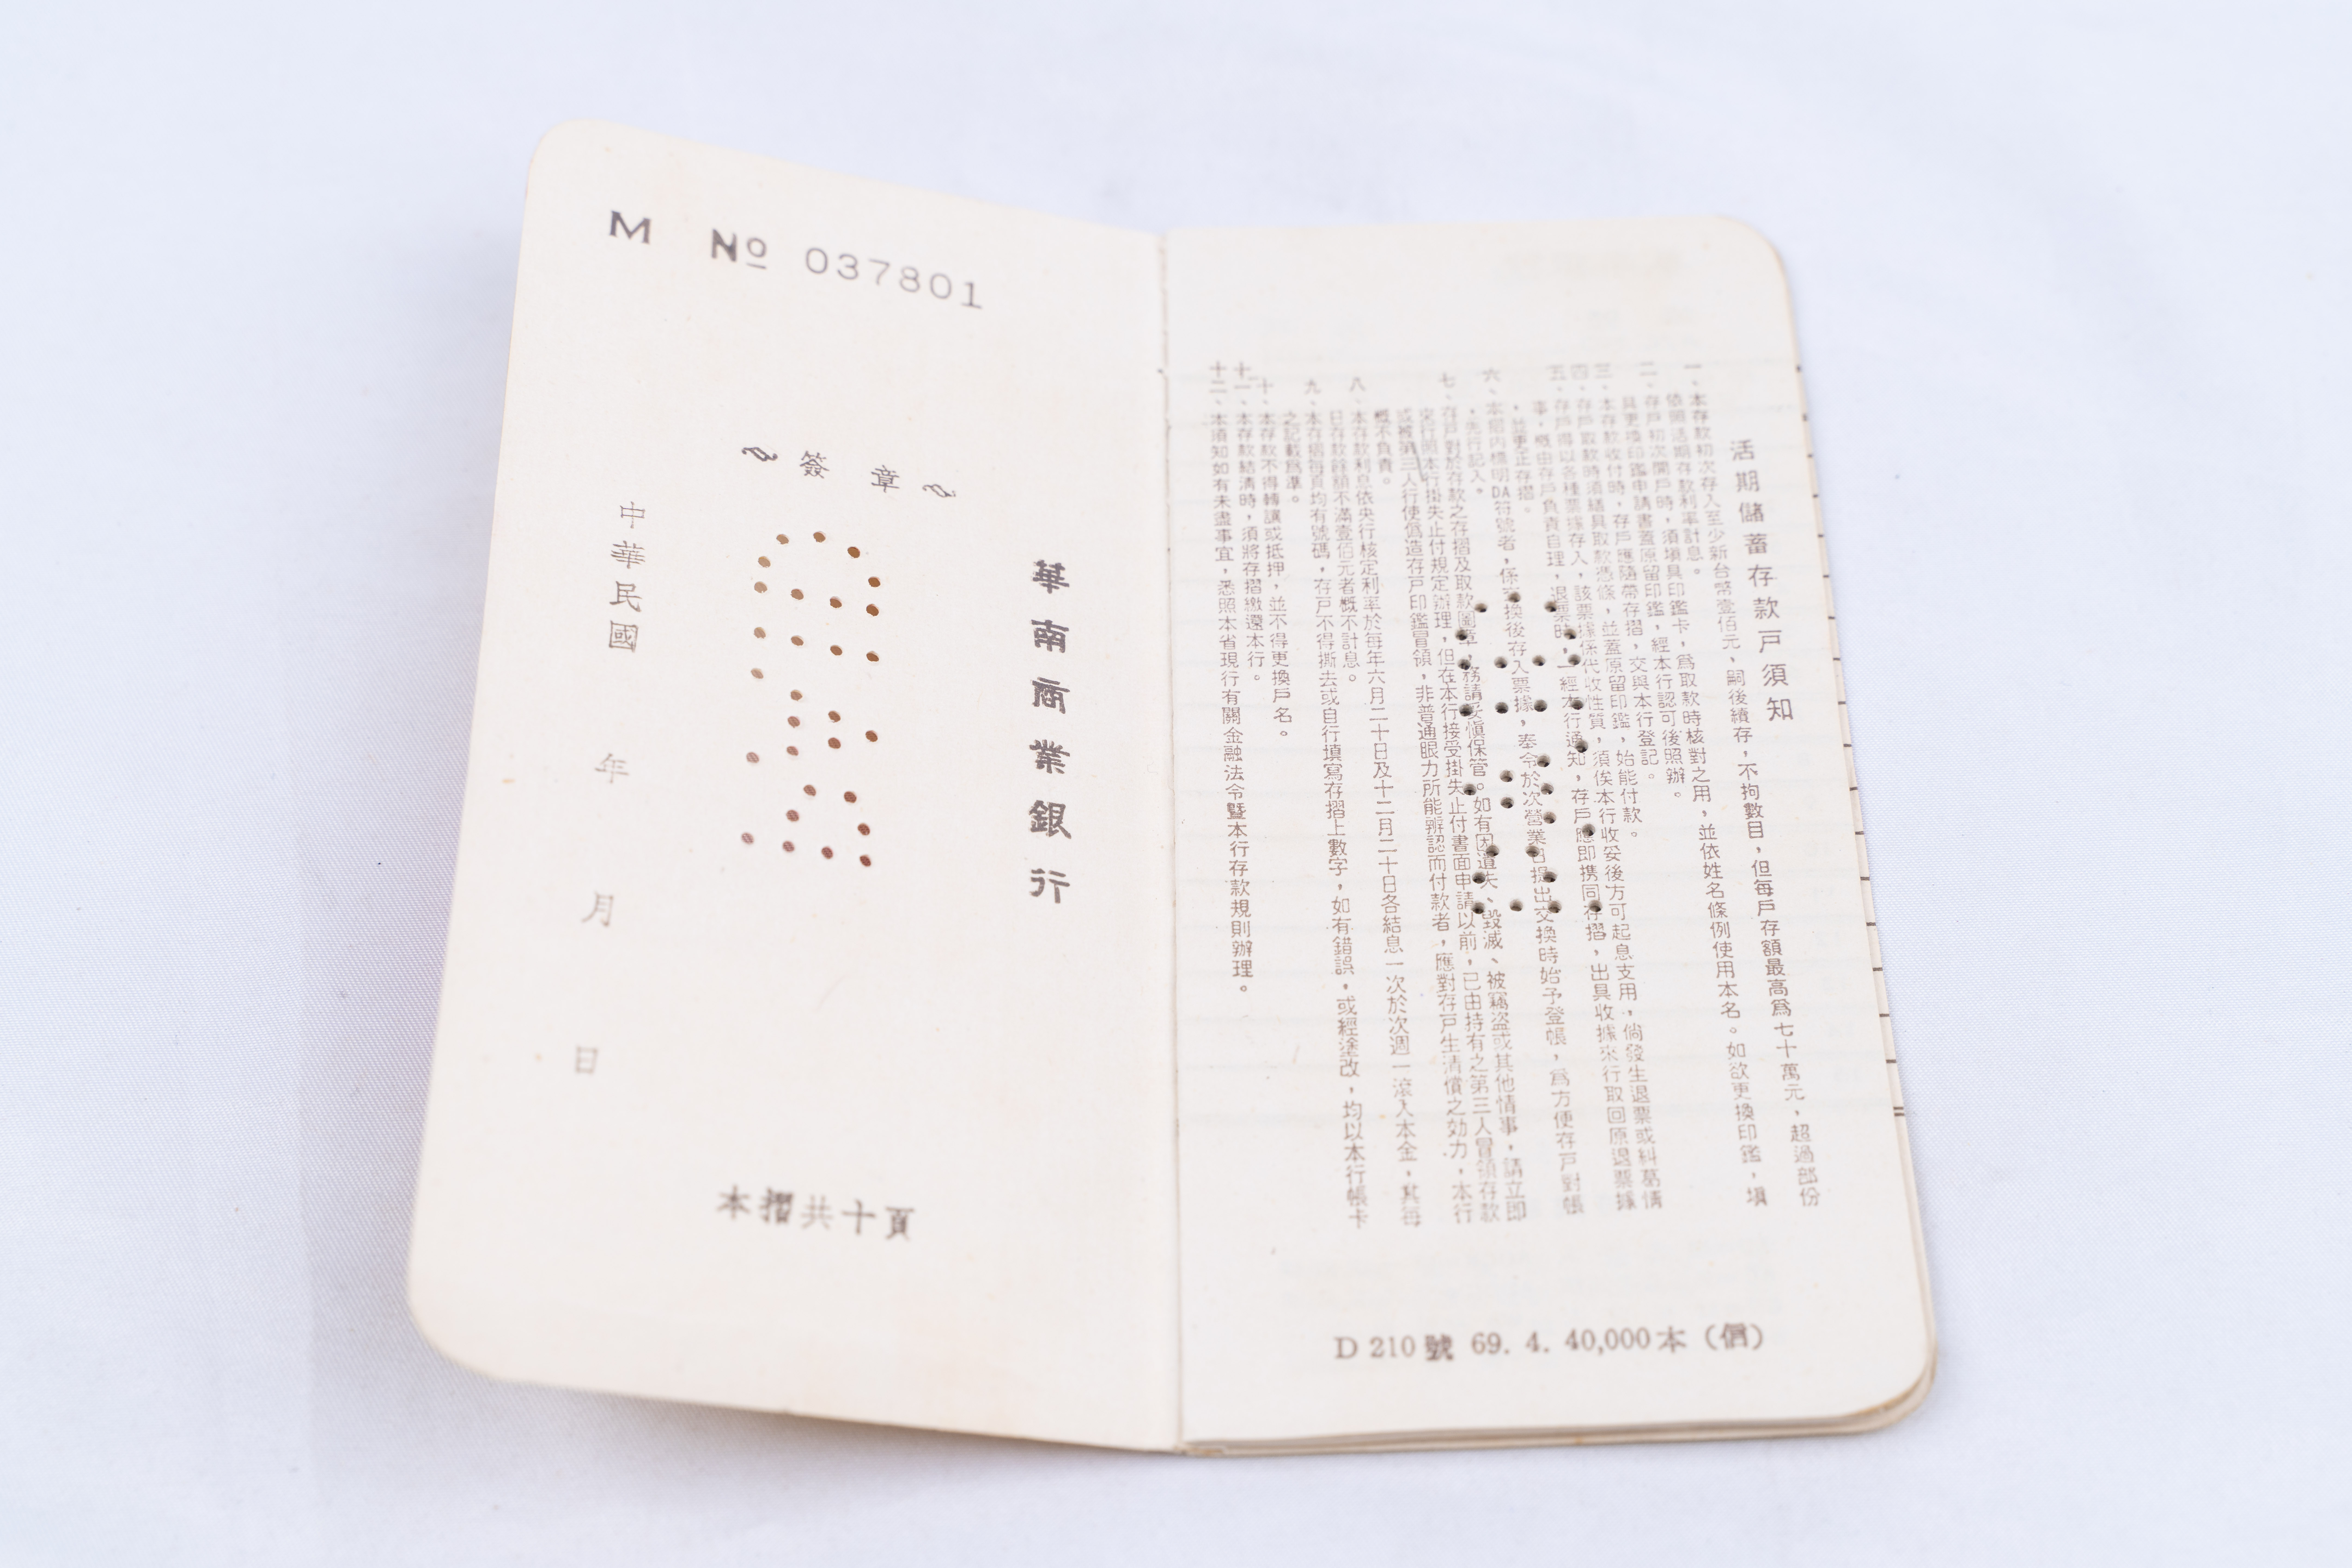 M № 037801
簽章
華南商業銀行
中華民國 年 月 日
本摺共十頁
活期儲蓄存款戶須知
一、本存款初次存入至少新台幣壹佰元、嗣後續存,不拘數目,但每戶存額最高為七十萬元,超過部份
依照活期存款利率計息。
二、存戶初次開戶時,須塡具印鑑卡,為取款時核對之用,並依姓名條例使用本名。如欲更換印鑑,塡
具更換印鑑申請書蓋原留印鑑,經本行認可後照辦。
三、本存款收付時,存戶應隨帶存摺,交與本行登記。
四、存戶取款時須繕具取款憑條,並蓋原留印鑑,始能付款。
五、存戶得以各種票據存入,該票據係代收性質,須俟本行收妥後方可起息支用,倘發生退票或糾葛情
事,概由存戶負責自理,退票時,一經本行通知,存戶應即携同存摺,出具收據來行取回原退票據
,並更正存摺。
六、本摺內標明DA符號者,係換後存入票據,奉令於次營業日提出交換時始予登帳,為方便存戶對帳
,先行記入。
七、存戶對於存款之存摺及取款圖章,務請妥愼保管。如有因遺失、毀滅、被竊盜或其他情事,請立即
來行照本行掛失止付規定辦理,但在本行接受掛失止付書面申請以前,已由持有之第三人冒領存款
或被第三人行使偽造存戶印鑑冒領,非普通眼力所能辨認而付款者,應對存戶生淸償之効力,本行
概不負責。
八、本存款利息依央行核定利率於每年六月二十日及十二月二十日各結息一次於次週一滾入本金,其每
日存款餘額不滿壹佰元者概不計息。
九、本存摺每頁均有號碼,存戶不得撕去或自行塡寫存摺上數字,如有錯誤,或經塗改,均以本行帳卡
之記載為準。
十、本存款不得轉讓或抵押,並不得更換戶名。
十一、本存款結淸時,須將存摺繳還本行。
十二、本須知如有未盡事宜,悉照本省現行有關金融法令暨本行存款規則辦理。
D 210 號 69. 4. 40,000本(信)